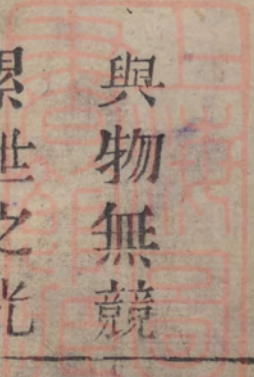 與物無競
累世之光